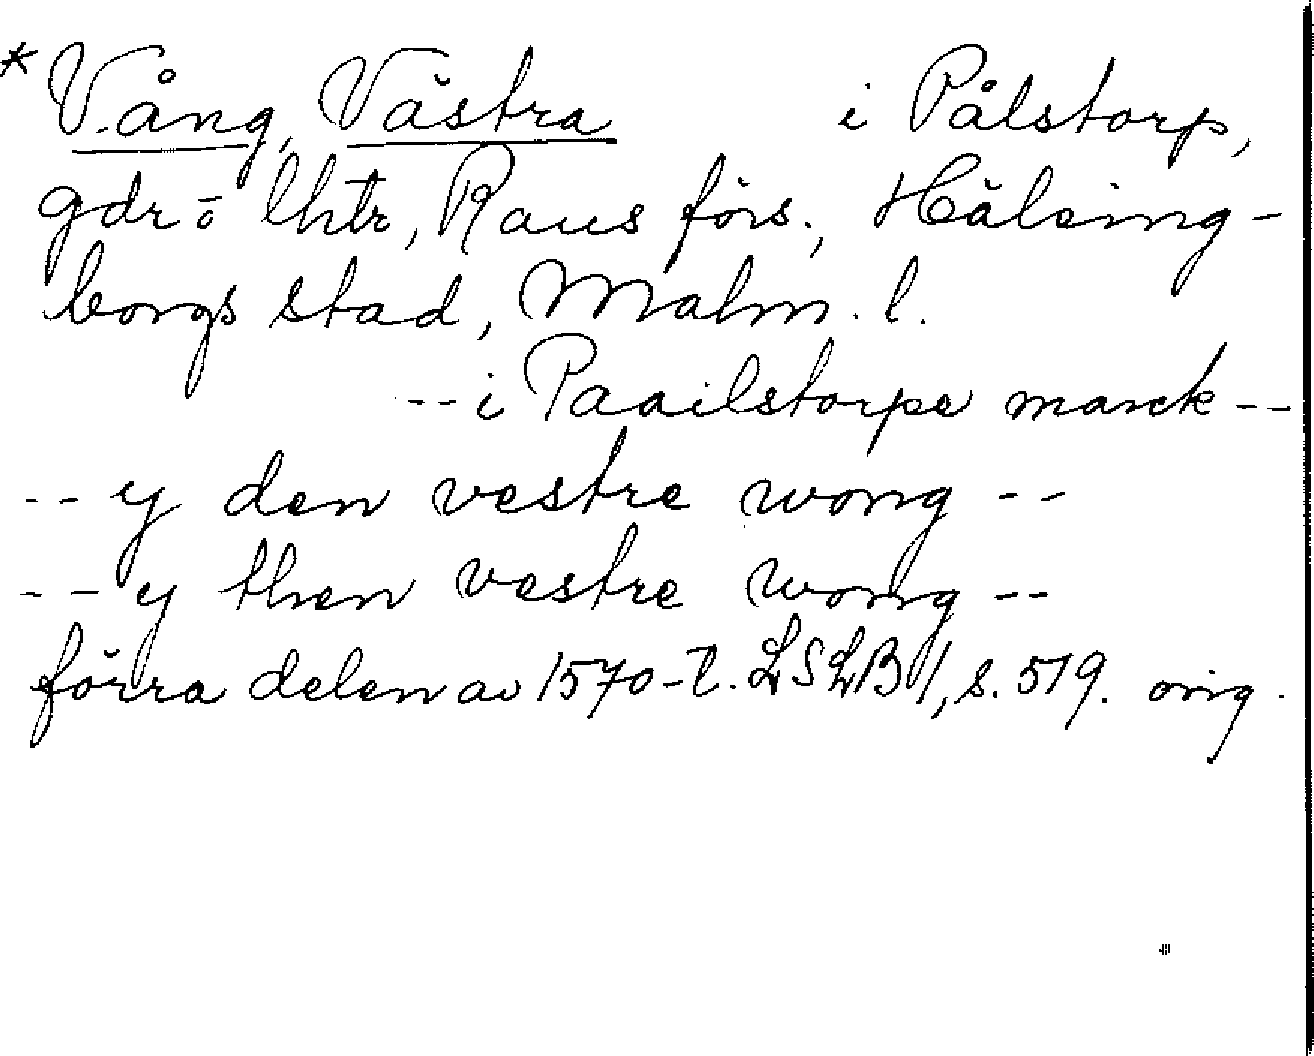 * Vång, Västra i Pålstorp,
gdr o lhtr, Raus förs., Hälsing-
borgs stad, Malm. l.
-- i Paailstorpe marck --
-- y den vestre wong --
-- y then vestre wong --
förra delen av 1570-t. LSLB 1, s. 519. orig.